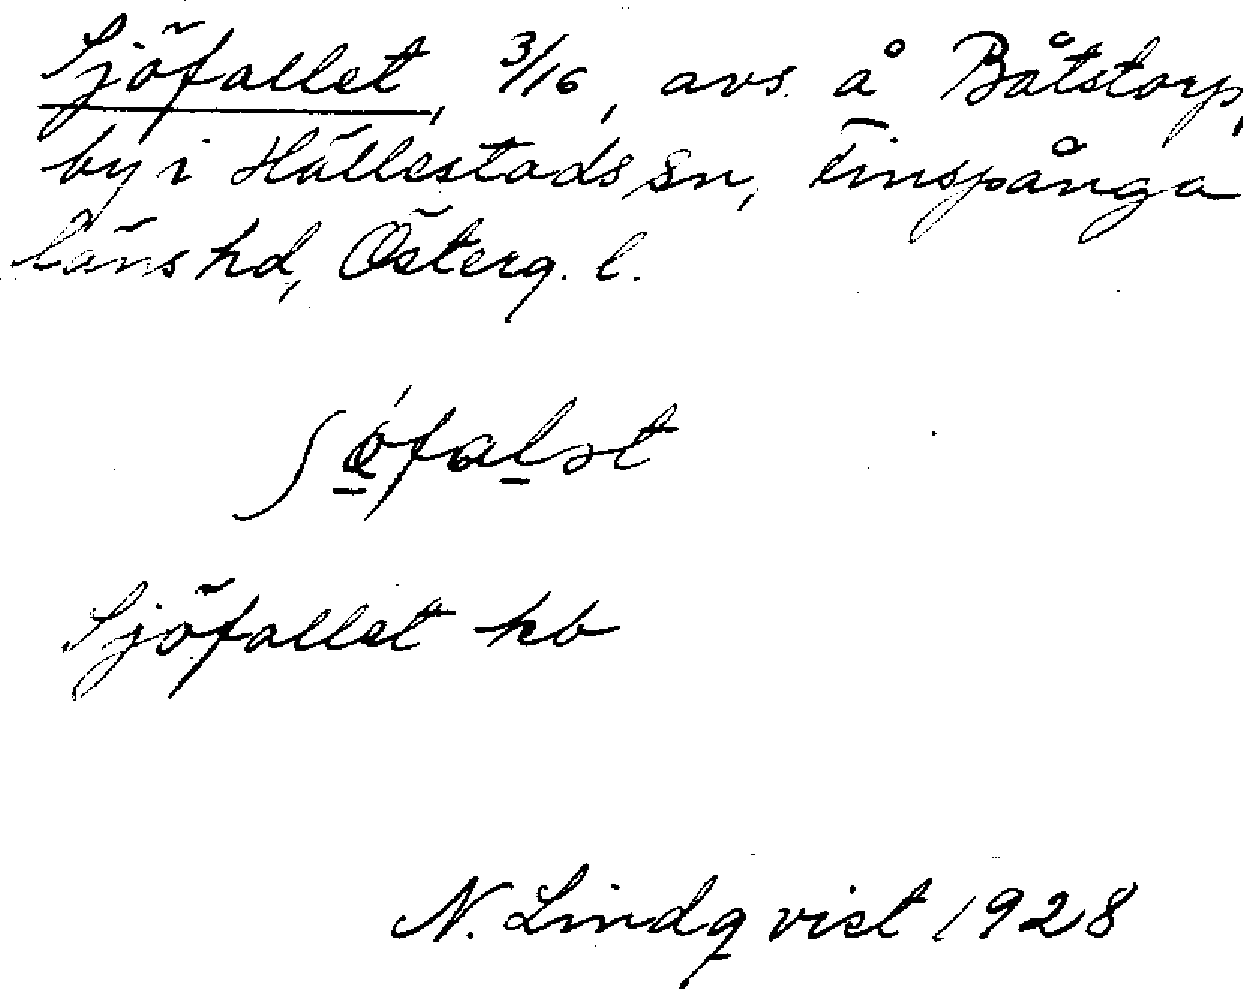 Sjöfallet, 3/16, avs. å Båtstorp,
by i Hällestads sn, Finspånga
läns hd, Österg. l.
ʃö́falət
Sjöfallet kb
N. Lindqvist 1928